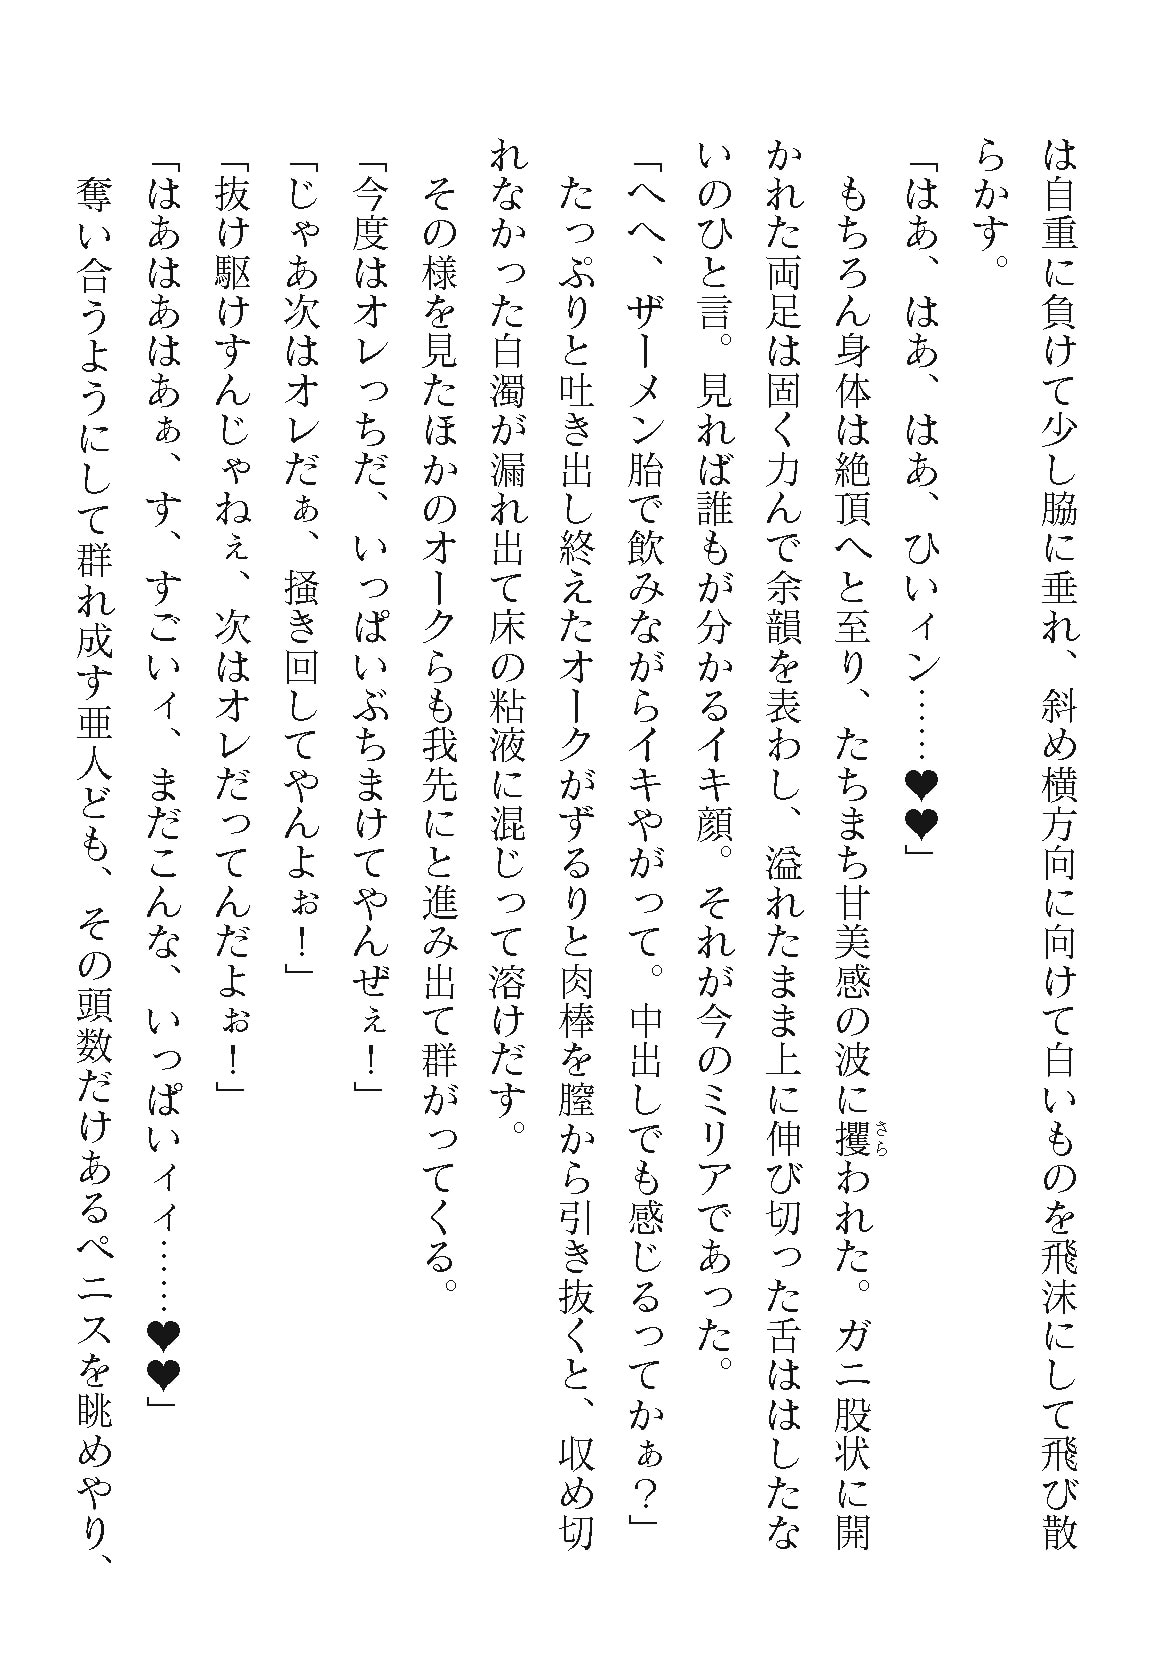 は自重に負けて少し脇に垂れ、斜め横方向に向けて白いものを飛沫にして飛び散
らかす。
「はあ、はあ、はあ、ひいィン……♥♥」
　もちろん身体は絶頂へと至り、たちまち甘美感の波に攫われた。ガニ股状に開
さら
かれた両足は固く力んで余韻を表わし、溢れたまま上に伸び切った舌ははしたな
いのひと言。見れば誰もが分かるイキ顔。それが今のミリアであった。
「へへ、ザーメン胎で飲みながらイキやがって。中出しでも感じるってかぁ？」
　たっぷりと吐き出し終えたオークがずるりと肉棒を膣から引き抜くと、収め切
れなかった白濁が漏れ出て床の粘液に混じって溶けだす。
　その様を見たほかのオークらも我先にと進み出て群がってくる。
「今度はオレっちだ、いっぱいぶちまけてやんぜぇ！」
「じゃあ次はオレだぁ、掻き回してやんよぉ！」
「抜け駆けすんじゃねぇ、次はオレだってんだよぉ！」
「はあはあはあぁ、す、すごいィ、まだこんな、いっぱいィィ……♥♥」
　奪い合うようにして群れ成す亜人ども、その頭数だけあるペニスを眺めやり、